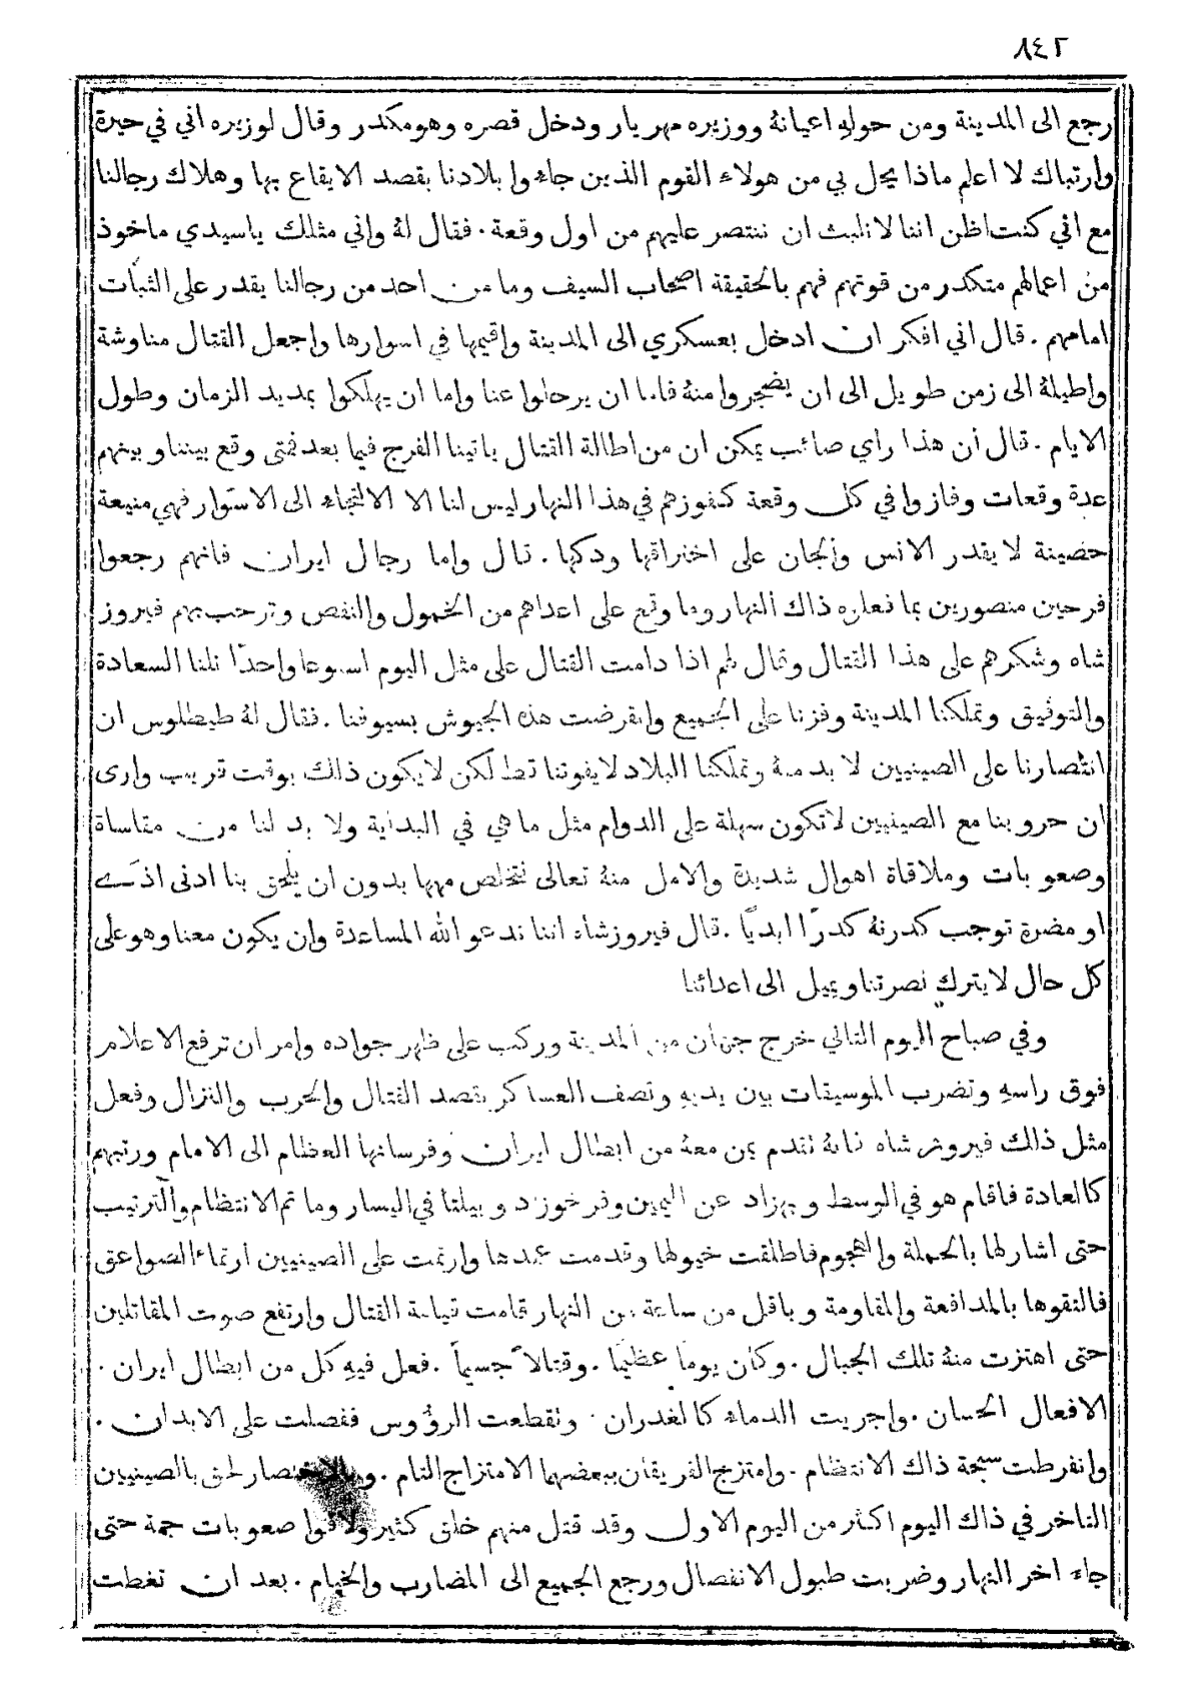 ٨٤٢
رجع الى المدينة ومن حولهِ اعيانهُ ووزيره مهريار ودخل قصره وهو مكدر وقال لوزيره اني في حيرة
وارتباك لا اعلم ماذا يحل بي من هولاء القوم الذين جاءوا بلادنا بقصد الايقاع بها وهلاك رجالنا
مع اني كنت اظن اننا لا نلبث ان ننتصر عليهم من اول وقعة . فقال لهُ واني مثلك ياسيدي ماخوذ
من اعمالهم متكدر من قوتهم فهم بالحقيقة اصحاب السيف وما من احد من رجالنا يقدر على الثبات
امامهم . قال اني افكر ان ادخل بعسكري الى المدينة واقيمها في اسوارها واجعل القتال مناوشة
واطيلهُ الى زمن طويل الى ان يضجروا منهُ فاما ان يرحلوا عنا واما ان يهلكوا بمديد الزمان وطول
الايام . قال ان هذا راي صائب يمكن ان من اطالة القتال ياتينا الفرج فيما بعد فمتى وقع بيننا وبينهم
عدة وقعات وفازوا في كل وقعة كفوزهم في هذا النهار ليس لنا الا الالتجاء الى الاسوار فهي منيعة
حصينة لا يقدر الانس والجان على اختراقها ودكها . قال واما رجال ايران فانهم رجعوا
فرحين منصورين بما فعلوه ذاك النهار وما وقع على اعداهم من الخمول والنقص وترحب بهم فيروز
شاه وشكرهم على هذا القتال وقال لهم اذا دامت القتال على مثل اليوم اسبوعا واحدًا نلنا السعادة
والتوفيق وتملكنا المدينة وفزنا على الجميع وانقرضت هذه الجيوش بسيوفنا . فقال لهُ طيطلوس ان
انتصارنا على الصينيين لا بد منهُ وتملكنا البلاد لا يفوتنا قط لكن لا يكون ذلك بوقت قريب وارى
ان حروبنا مع الصينيين لاتكون سهلة على الدوام مثل ما هي في البداية ولا بد لنا من مقاساة
وصعوبات وملاقاة اهوال شديدة والامل منهُ تعالى نتخلص منها بدون ان يلحق بنا ادنى اذى
او مضرة توجب كدرنهُ كدرًا ابديًا . قال فيروزشاه اننا ندعو الله المساعدة وان يكون معنا وهو على
كل حال لا يترك نصرتنا ويميل الى اعدائنا
وفي صباح اليوم التالي خرج جهان من المدينة وركب على ظهر جواده وامر ان ترفع الاعلام
فوق راسهِ وتضرب الموسيقات بين يديهِ وتصف العساكر بقصد القتال والحرب والنزال وفعل
مثل ذلك فيروز شاه فانهُ تقدم بمن معهُ من ابطال ايران وفرسانها العظام الى الامام ورتبهم
كالعادة فاقام هو في الوسط وبهزاد عن اليمين وفرخوزاد وبيلتا في اليسار وما تم الانتظام والترتيب
حتى اشار لها بالحملة والهجوم فاطلقت خيولها وقدمت عمدها وارتمت على الصينيين ارتماء الصواعق
فالتقوها بالمدافعة والمقاومة وباقل من ساعة من النهار قامت قيامة القتال وارتفع صوت المقاتلين
حتى اهتزت منهُ تلك الجبال . وكان يوماً عظيمًا . وقتالاً جسيماً . فعل فيهِ كل من ابطال ايران .
الافعال الحسان . واجريت الدماء كالغدران . وتقطعت الرؤوس ففصلت على الابدان .
وانفرطت سبحة ذاك الانتظام . وامتزج الفريقان ببعضهما الامتزاج التام . وبالاختصار لحق بالصينيين
التاخر في ذاك اليوم اكثر من اليوم الاول وقد قتل منهم خلق كثير ولاقوا صعوبات جمة حتى
جاء اخر النهار وضربت طبول الانفصال ورجع الجميع الى المضارب والخيام . بعد ان تغطت